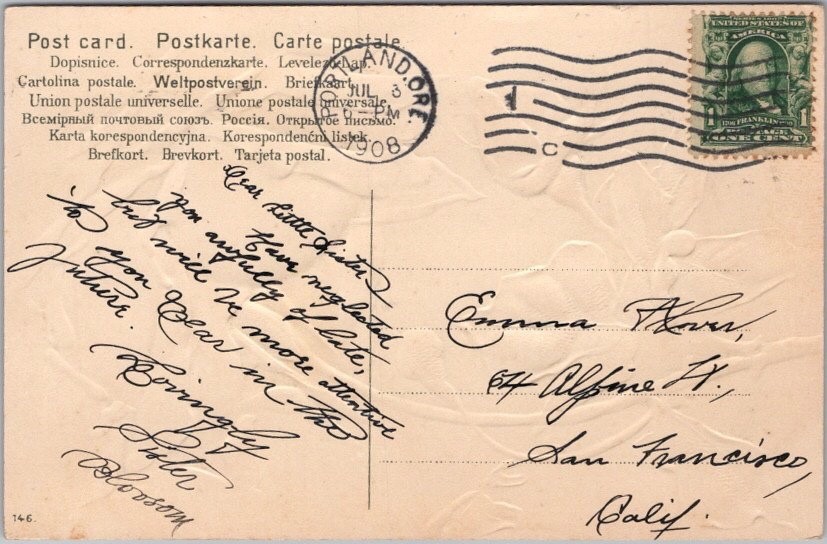 Post card. Postkarte. Carte postale.
Dopisnice. Correspondenzkarte. Levelező-Lap.
Cartolina postale. Weltpostverein. Briefkaart.
Union postale universelle. Unione postale universale.
Всемірный почтовый союзъ. Россія. Открытое письмо.
Karta korespondencyjna. Korespondenční lístek.
Brefkort. Brevkort. Tarjeta postal.
PORTLAND, ORE.
JUL 3
6-PM
1908
1
C
SERIES 1902
UNITED STATES OF
AMERICA
1 FRANKLIN 1
POSTAGE
ONE CENT
Dear Little Sister
Have neglected
you awfully of late,
but will be more attentive
to you Dear in the
future.
Lovingly
Sister
Emma
64 Alpine St.,
San Francisco,
Calif.
146.